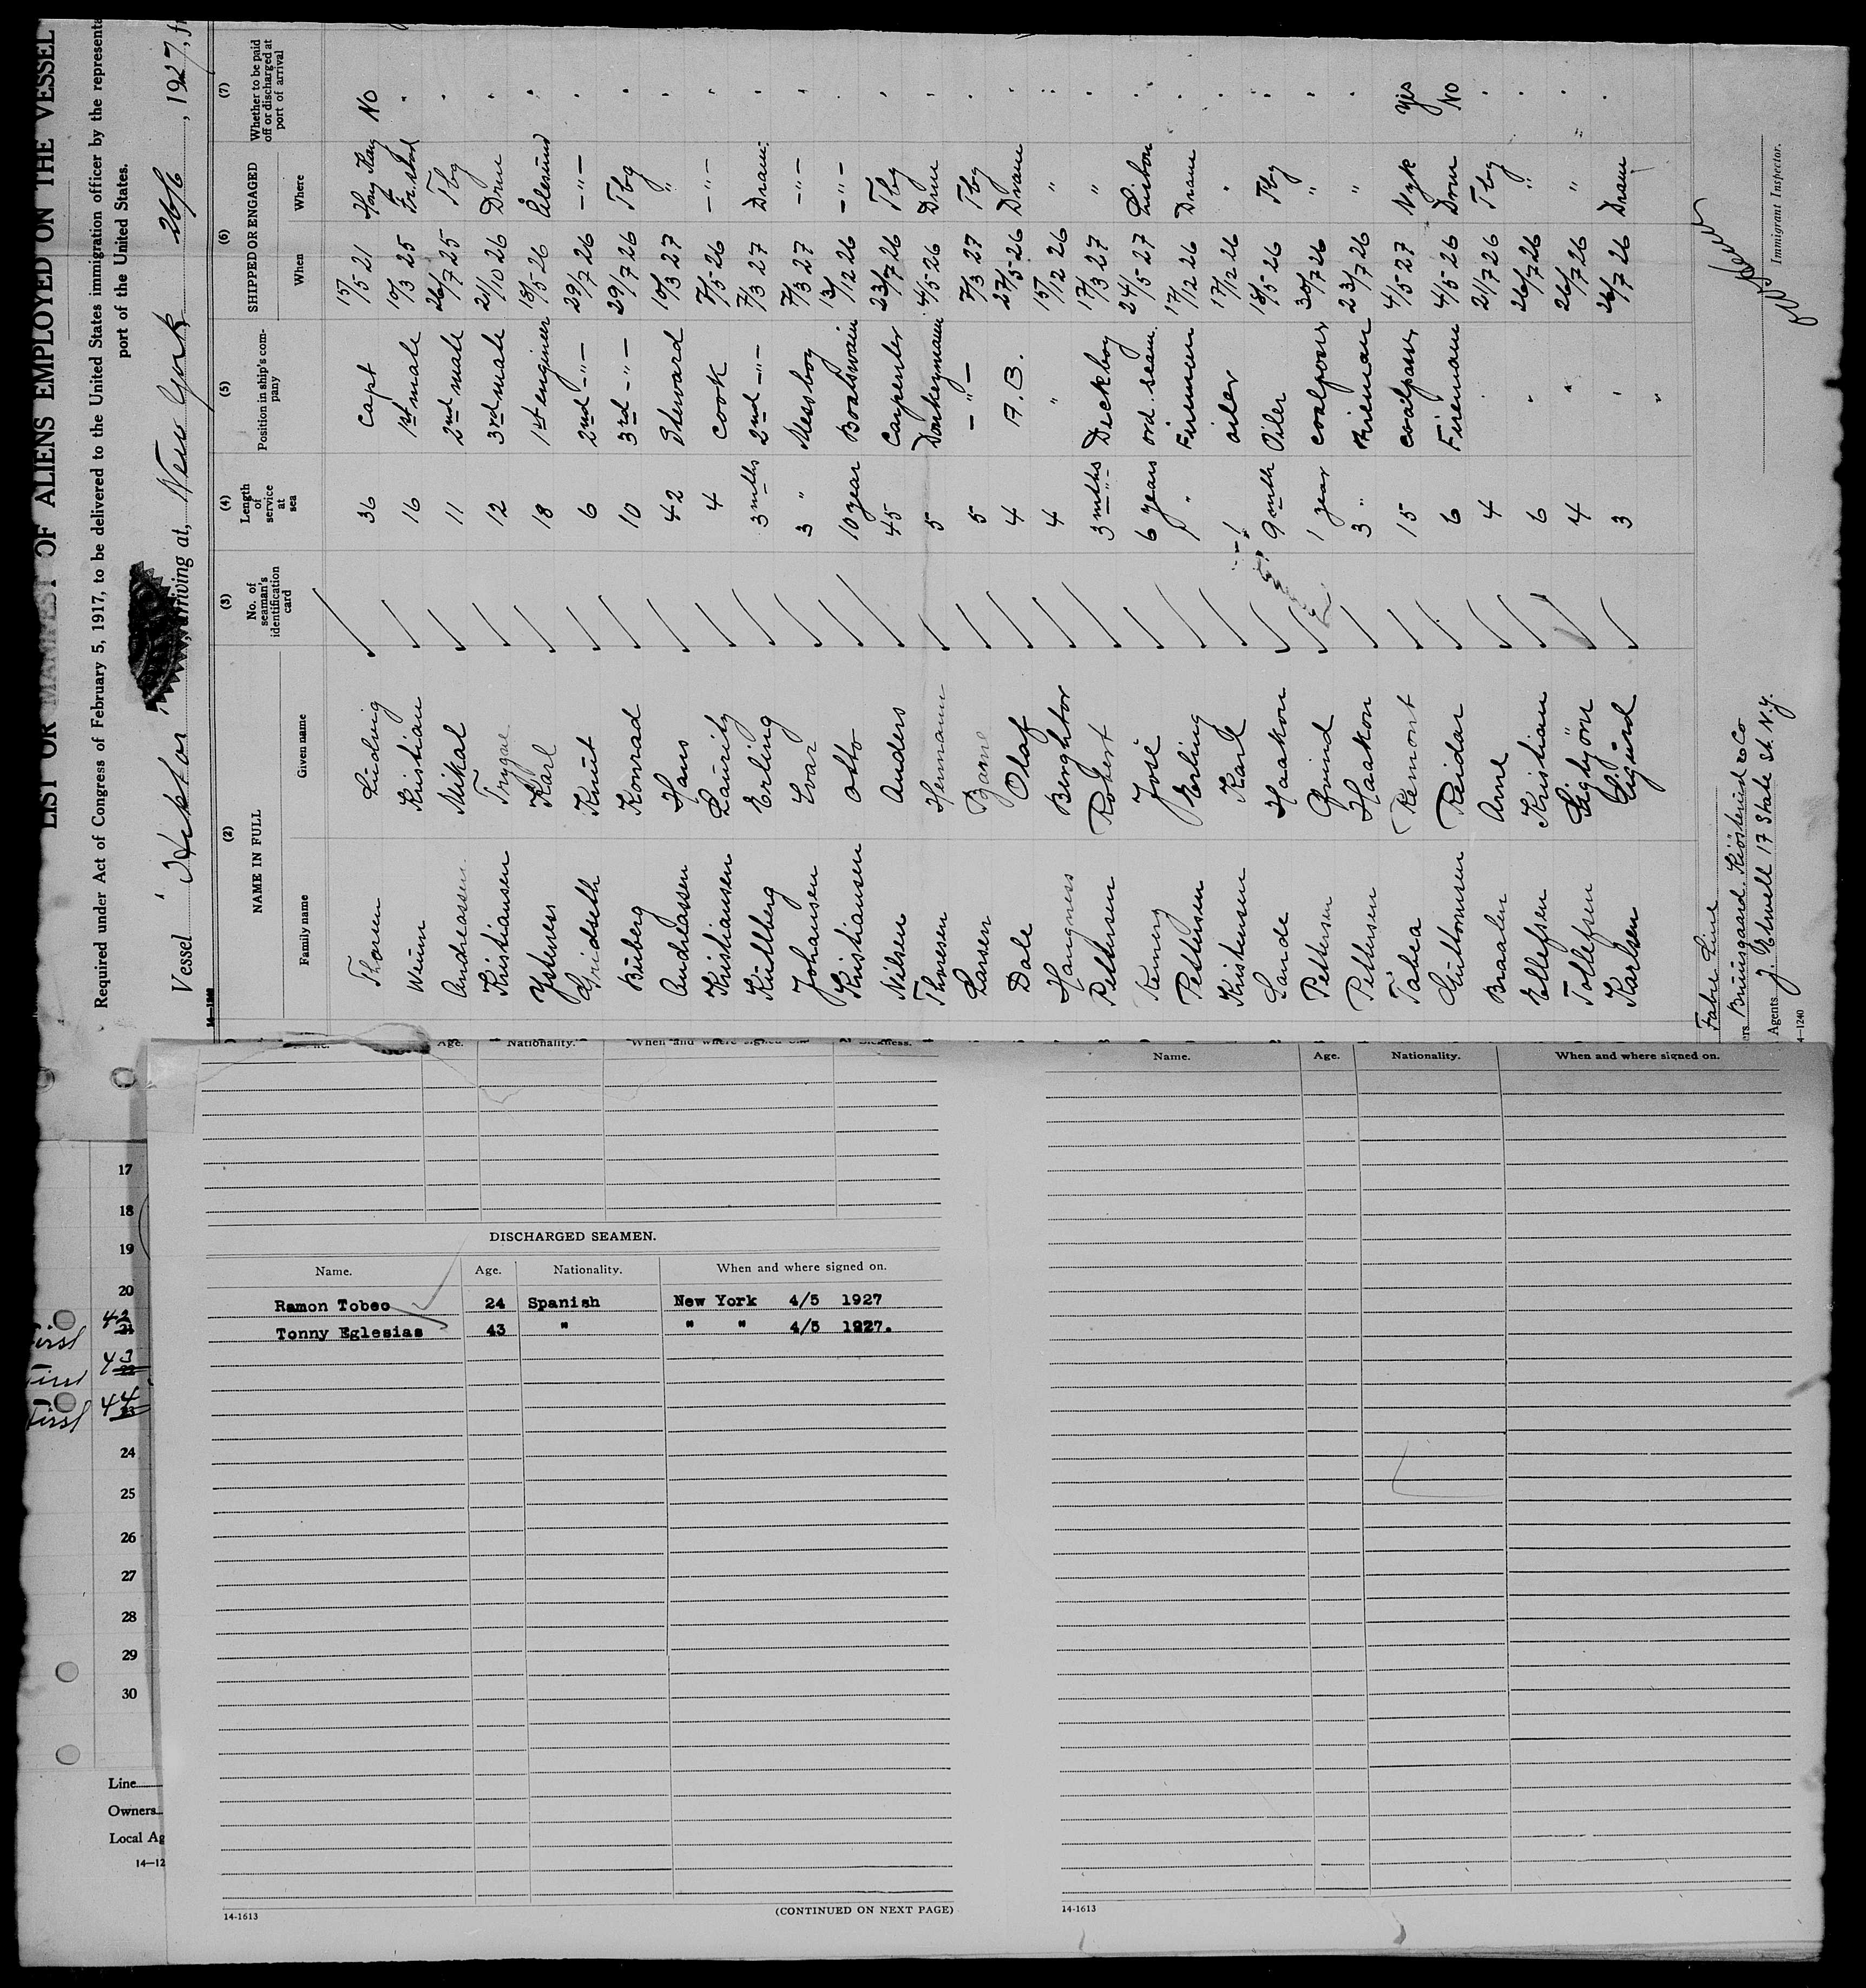 LIST OR MANIFEST OF ALIENS EMPLOYED ON THE VESSEL
Required under Act of Congress of February 5, 1917, to be delivered to the United States immigration officer by the represent
port of the United States.
Vessel arriving at, New York 26/6, 1927, f
14-1240
(2) (3) (4) (5) (6) (7)
NAME IN FULL No. of seaman's identification card Length of service at sea Position in ship's company SHIPPED OR ENGAGED Whether to be paid off or discharged at port of arrival
Family name Given name When Where
Thorsen Ludvig 36 Capt 15/5 21 Hong Kong No
Weum Kristian 16 1st mate 10/3 25
Andreassen Mikal 11 2nd mate 26/7 25 Tbg "
Kristiansen Trygve 12 3rd mate 21/10 26 Drm "
Karl 18 1st engineer 18/5 26 "
Knut 6 2nd -"- 29/7 26 -"- "
Buberg Konrad 10 3rd -"- 29/7 26 Tbg "
Andreassen Hans 42 Steward 10/3 27 " "
Kristiansen Lauritz 4 Cook 26 -"- "
Kullberg Erling 3 mths 2nd -"- 7/3 27 Dram. "
Johansen Ivar 3 " Messboy 7/3 27 -"- "
Kristiansen Otto 10 year Boatswain 13/12 26 -"-
Nilsen Anders 45 Carpenter 23/7 26 Tbg "
Thoresen Hermann 5 Donkeymann 4/5 26 Drm "
Larsen Bjarne 5 -"- 7/3 27 Tbg "
Dale Olaf 4 A.B. 27/5 26 Dram "
Haugness Bergthor 4 " 15/12 26 " "
Pettersen Robert 3 mths Deckboy 17/3 27 " "
José 6 years ord. seam. 24/5 27 Lisbon "
Pettersen Erling 1 " Firemen 17/12 26 Dram "
Kristensen Karl oiler 17/12 26 " "
Sande Haakon 9 month Oiler 18/5 26 Tbg "
Pettersen Øivind 1 year coalpasser 30/7 26 " "
Pettersen Haakon 3 " Fireman 23/7 26 " "
Remont 15 coalpasser 4/5 27 N.yk Yes
Guttormsen Reidar 6 Firemann 4/5 26 Drm No
Braaten Arne 4 " 21/7 26 Tbg "
Ellefsen Kristian 6 " 26/7 26 " "
Tollefsen Sigbjörn 4 " 26/7 26 " "
Karlsen Sigurd 3 " 26/7 26 Dram "
Fabre Line
ers Bruusgaard Kiösterud & Co
Agents J. Elwell 17 State St. N.Y.
Immigrant Inspector.
4-1240
Name. Age. Nationality. When and where signed on.
DISCHARGED SEAMEN.
Name. Age. Nationality. When and where signed on.
Ramon Tobeo 24 Spanish New York 4/5 1927
Tonny Eglesias 43 " " " 4/5 1927.
14-1613
(CONTINUED ON NEXT PAGE)
Name. Age. Nationality. When and where signed on.
14-1613
17
18
19
20
42
43
44
24
25
26
27
28
29
30
Line
Owners
Local Ag
14-12